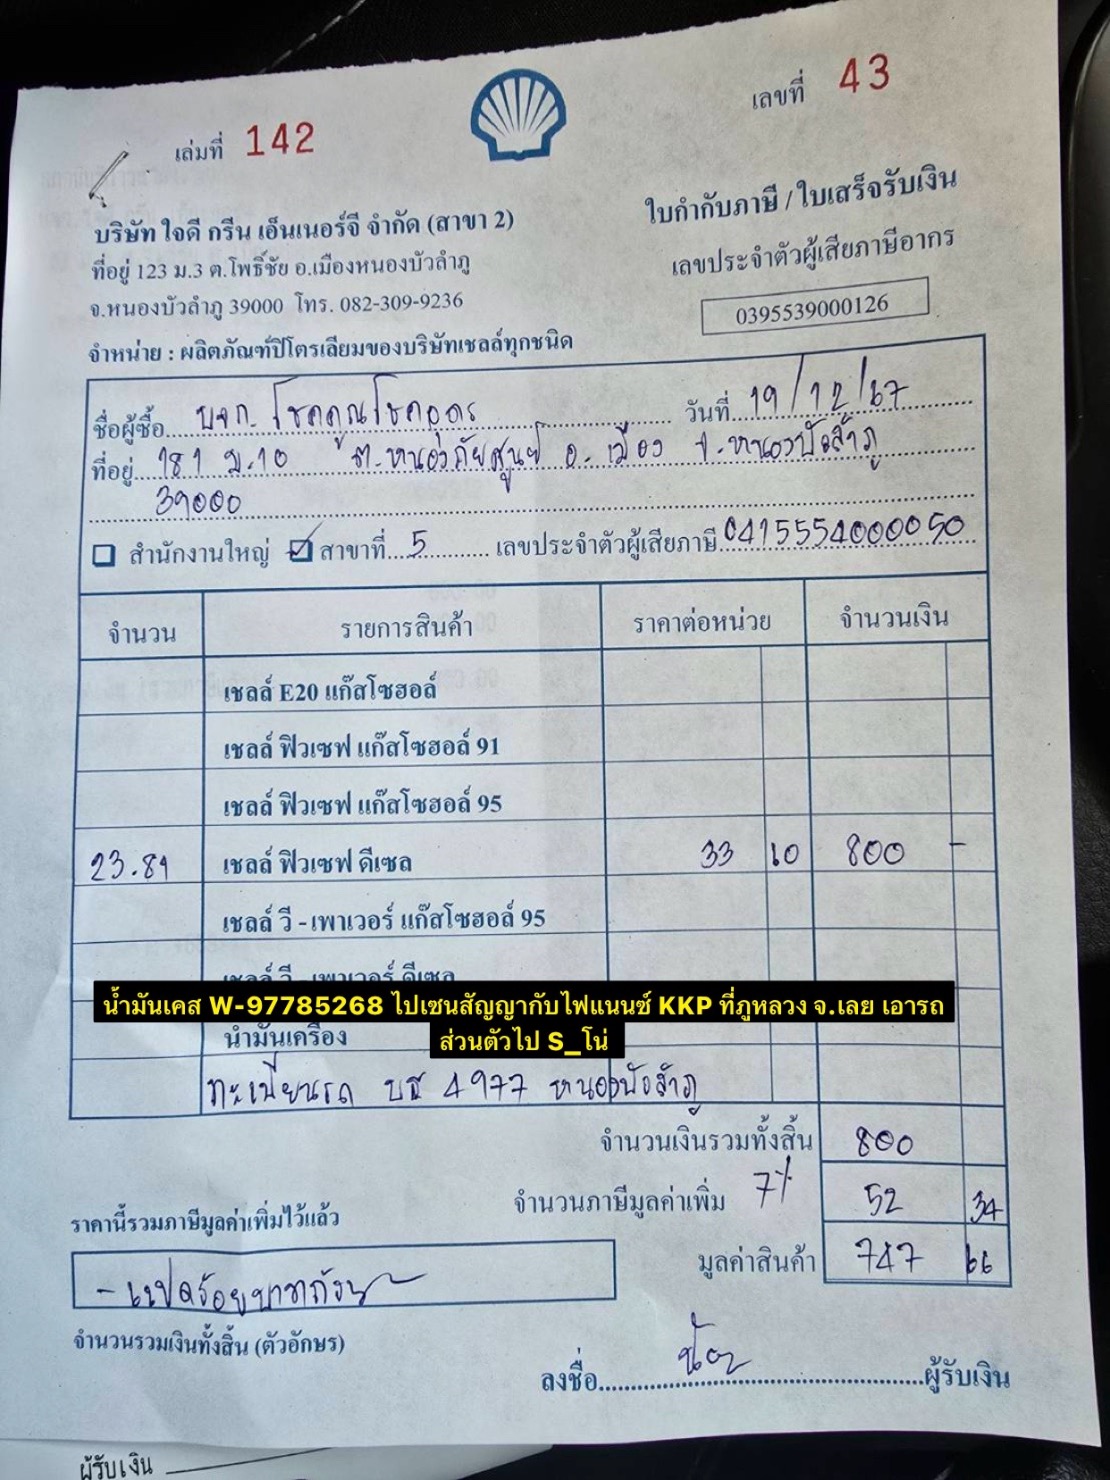 เล่มที่ 142
เลขที่ 43
บริษัท ใจดี กรีน เอ็นเนอร์จี จำกัด (สาขา 2)
ที่อยู่ 123 ม.3 ต.โพธิ์ชัย อ.เมืองหนองบัวลำภู
จ.หนองบัวลำภู 39000 โทร. 082-309-9236
จำหน่าย : ผลิตภัณฑ์ปิโตรเลียมของบริษัทเชลล์ทุกชนิด
ใบกำกับภาษี / ใบเสร็จรับเงิน
เลขประจำตัวผู้เสียภาษีอากร
0395539000126
ชื่อผู้ซื้อ บจก. โชคคูณโชคอุดร วันที่ 19/12/67
ที่อยู่ 181 ม.10 ต.หนองภัยศูนย์ อ.เมือง จ.หนองบัวลำภู
39000
สำนักงานใหญ่ สาขาที่ 5 เลขประจำตัวผู้เสียภาษี 0415554000050
จำนวน รายการสินค้า ราคาต่อหน่วย จำนวนเงิน
เชลล์ E20 แก๊สโซฮอล์
เชลล์ ฟิวเซฟ แก๊สโซฮอล์ 91
เชลล์ ฟิวเซฟ แก๊สโซฮอล์ 95
เชลล์ ฟิวเซฟ ดีเซล 33 800 -
เชลล์ วี - เพาเวอร์ แก๊สโซฮอล์ 95
เชลล์ วี - เพาเวอร์ ดีเซล
น้ำมันเคส W-97785268 ไปเซนสัญญากับไฟแนนซ์ KKP ที่ภูหลวง จ.เลย เอารถ
ส่วนตัวไป S_โน่
น้ำมันเครื่อง
ทะเบียนรถ 4977 หนองบัวลำภู
จำนวนเงินรวมทั้งสิ้น 800
จำนวนภาษีมูลค่าเพิ่ม 7% 52 34
ราคานี้รวมภาษีมูลค่าเพิ่มไว้แล้ว
มูลค่าสินค้า 747 66
- แปดร้อยบาทถ้วน -
จำนวนรวมเงินทั้งสิ้น (ตัวอักษร)
ลงชื่อ ผู้รับเงิน
ผู้รับเงิน